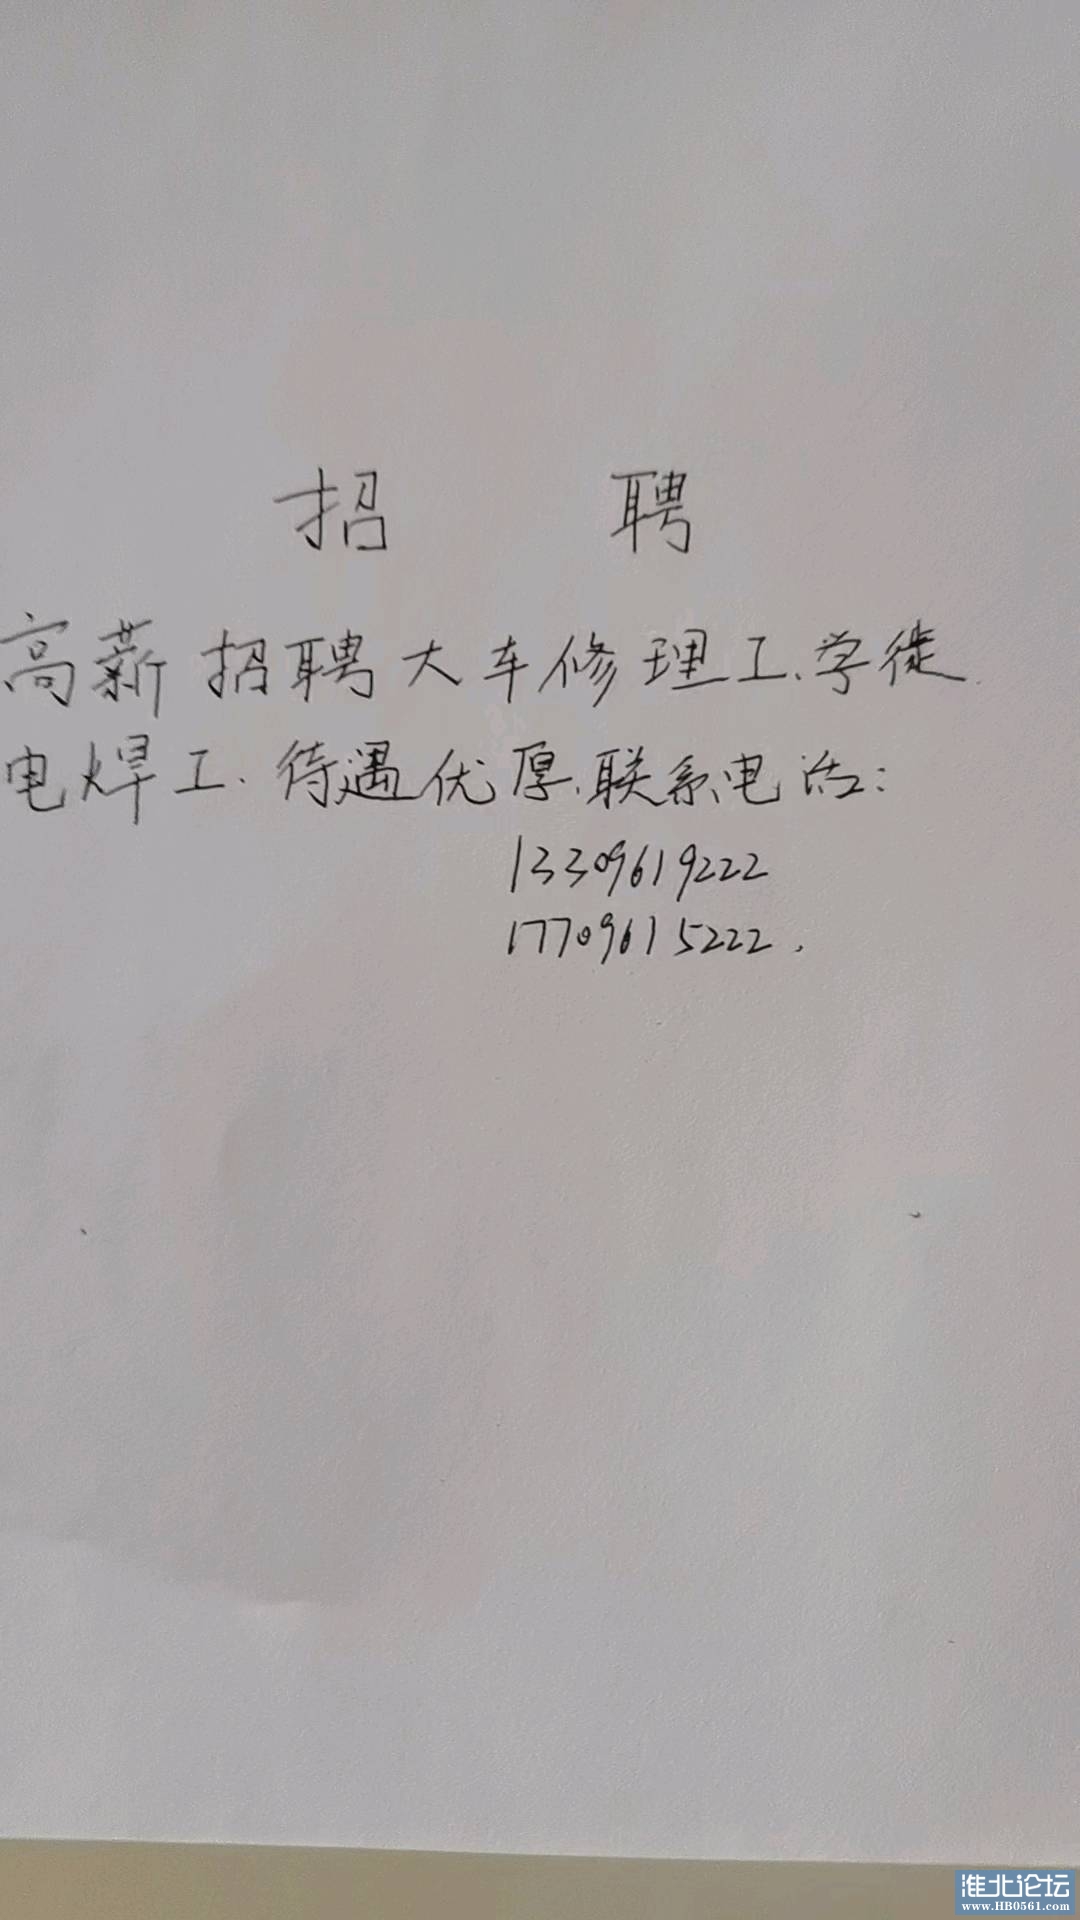 招 聘
高薪招聘大车修理工、学徒、
电焊工、待遇优厚、联系电话：
13309619222
17709615222.
淮北论坛
www.HB0561.com